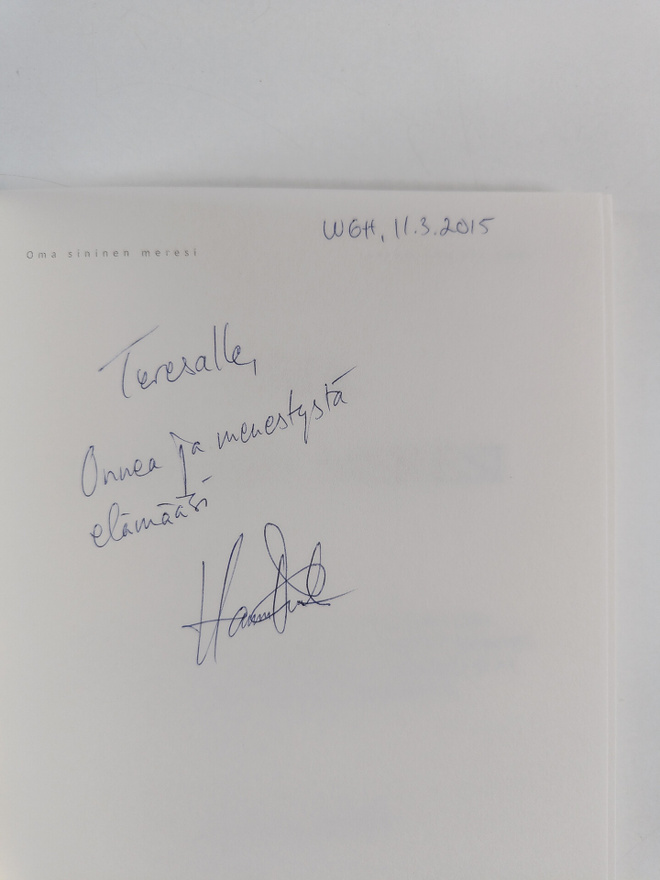 WGH, 11.3.2015
Oma sininen meresi
Teresalle,
Onnea ja menestystä
elämääsi